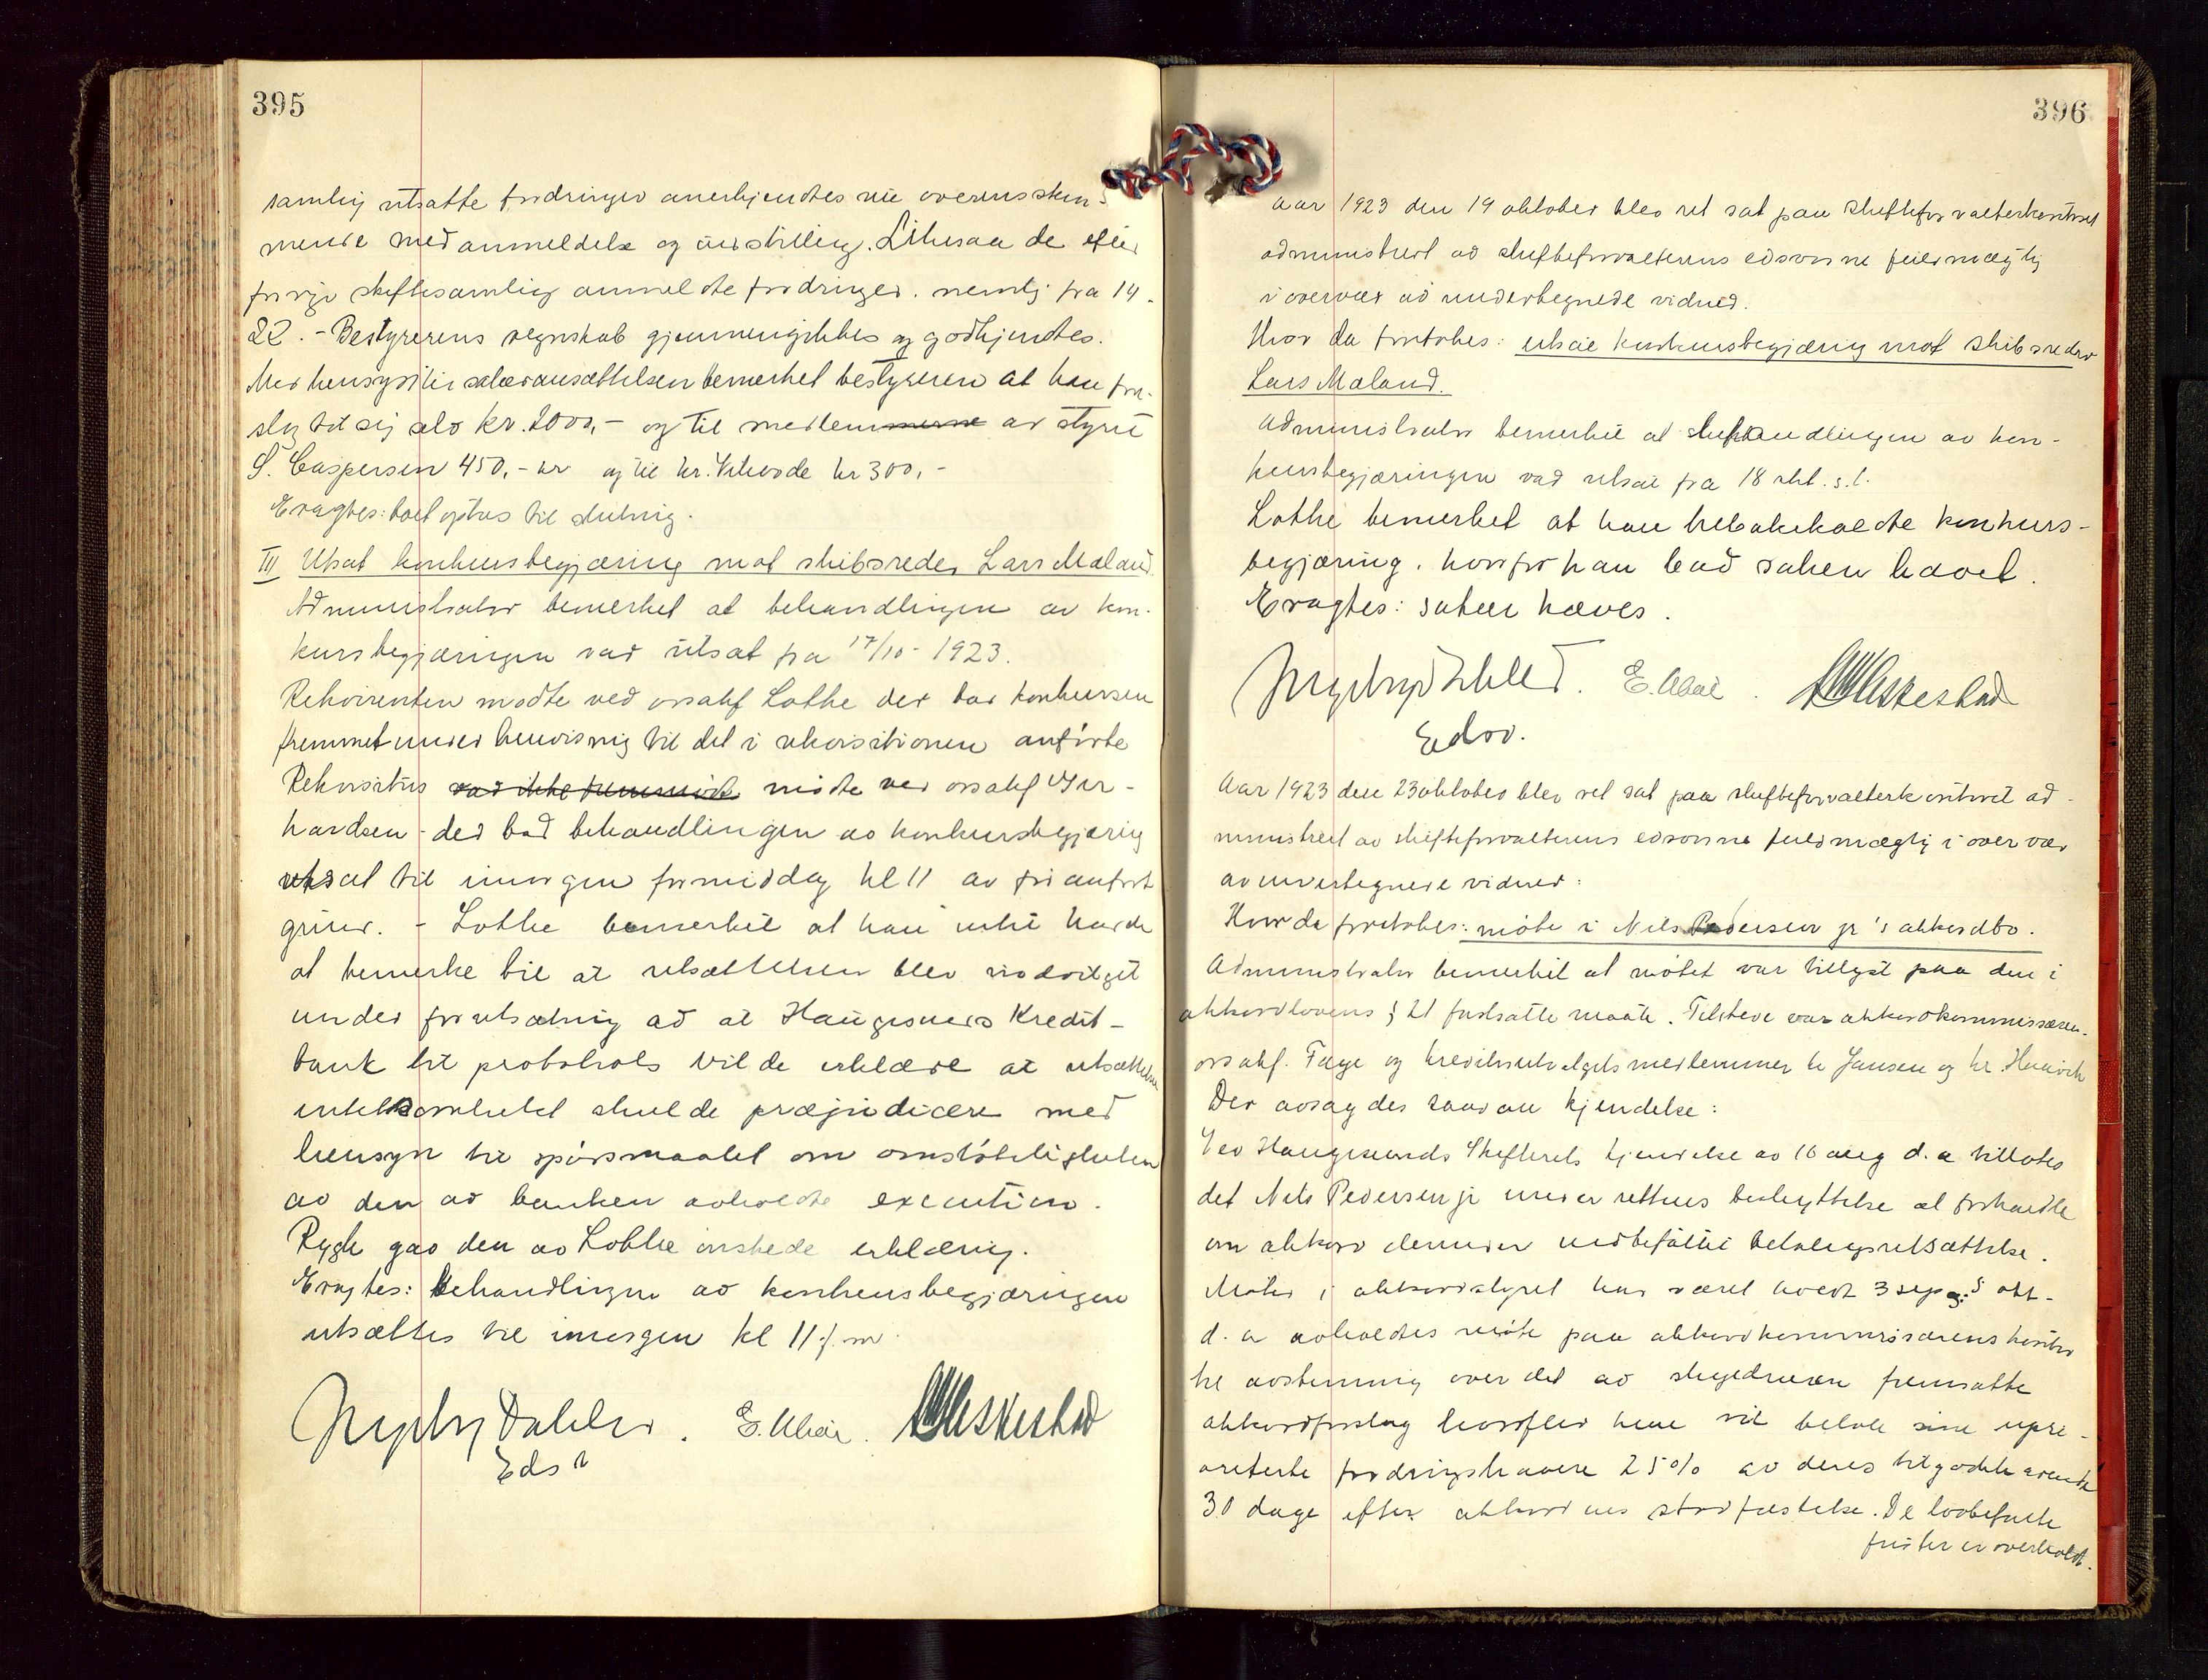 395
samling utsatte fordringer anerkjendtes nu overensstem-
mende med anmeldelse og indstilling. Likesaa de efter
forrige skiftesamling anmeldte fordringer. nemlig fra 19-
22. - Bestyrerens regnskab gjennemgikkes og godkjendtes.
Med hensyn til salæransættelsen bemerket bestyreren at han fore-
slog til sig selv kr. 2000,- og til medlemmerne av styret
S. Caspersen 450,- kr og til hr. kr 300,-
Eragtes: boet optas til slutning.
III Utsat konkursbegjæring mot skibsreder Lars Mæland.
Administrator bemerket at behandlingen av kon-
kursbegjæringen var utsat fra 17/10-1923.
Rekvirenten mødte ved orsakf Lothe der bad konkursen
fremmet under henvisning til det i rekvisitionen anførte
Rekvisitus var ikke fremmødt møtte ved orsakf Ger-
hardsen - der bad behandlingen av konkursbegjæring
utsat til imorgen formiddag kl 11 av før anført
grund. - Lothe bemerket at han intet havde
at bemerke til at utsættelsen blev indvilget
under forutsætning av at Haugesunds Kredit-
bank til protokols vilde erklære at utsættelsen
intetsomhelst skulde præjudicere med
hensyn til spørsmaalet om omstøteligheten
av den av banken avholdte execution.
Rygh gav den av Lothe ønskede erklæring.
Eragtes: Behandlingen av konkursbegjæringen
utsættes til imorgen kl 11 f.m.
Dahler. E.
Edsv
396
Aar 1923 den 19 oktober blev ret sat paa skifteforvalterkontoret
administrert av skifteforvalterens edsvorne fuldmægtig
i overvær av undertegnede vidner.
Hvor da foretokes: utsat konkursbegjæring mot skibsreder
Lars Mæland.
Administrator bemerket at behandlingen av kon-
kursbegjæringen var utsat fra 18 okt. s.l.
Lothe bemerket at han tilbakekaldte konkurs-
begjæring, hvorfor han bad saken hævet.
Eragtes: saken hæves.
E.
Edsv.
Aar 1923 den 23 oktober blev ret sat paa skifteforvalterkontoret ad-
ministrert av skifteforvalterens edsvorne fuldmægtig i overvær
av undertegnede vidner:
Hvor da foretokes: møte i Nils Pedersen jr's akkordbo.
Administrator bemerket at møtet var tillyst paa den i
akkordlovens § 21 fastsatte maate. Tilstede var akkordkommissæren
orsakf. Tage og kreditorutvalgets medlemmer hr Jansen og hr.
Der avsagdes saadan kjendelse:
Ved Haugesunds Skifterets kjendelse av 16 aug d.a tillotes
det Nils Pedersen jr under rettens beskyttelse at forhandle
om akkord derunder indbefattet betalingsutsættelse.
Møter i akkordstyret har været holdt 3 sep. 5 okt-
d. a avholdtes møte paa akkordkommissærens kontor
til avstemning over det av skyldneren fremsatte
akkordforslag hvorefter han vil betale sine upri-
oriterte fordringshavere 25% av deres tilgodehavende
30 dage efter akkordens stadfæstelse. De lovbefalte
frister er overholdt.